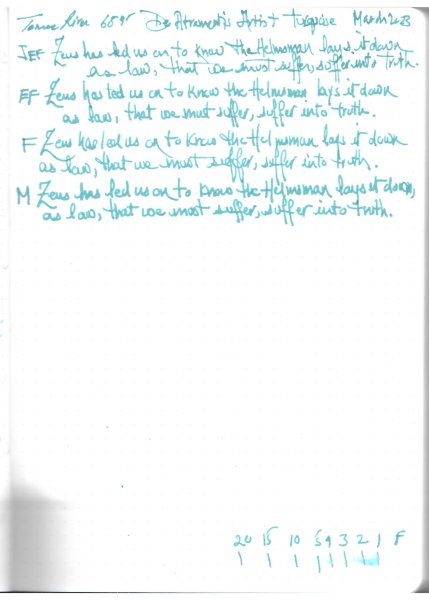 Tomoe River 68gr De Atramentis Artist Turquoise March 2023
JEF Zeus has led us on to know the Helmsman lays it down
as law, that we must suffer, suffer into truth.
EF Zeus has led us on to know the Helmsman lays it down
as law, that we must suffer, suffer into truth.
F Zeus has led us on to know the Helmsman lays it down
as law, that we must suffer, suffer into truth.
M Zeus has led us on to know the Helmsman lays it down,
as law, that we must suffer, suffer into truth.
20 15 10 5 4 3 2 1 F